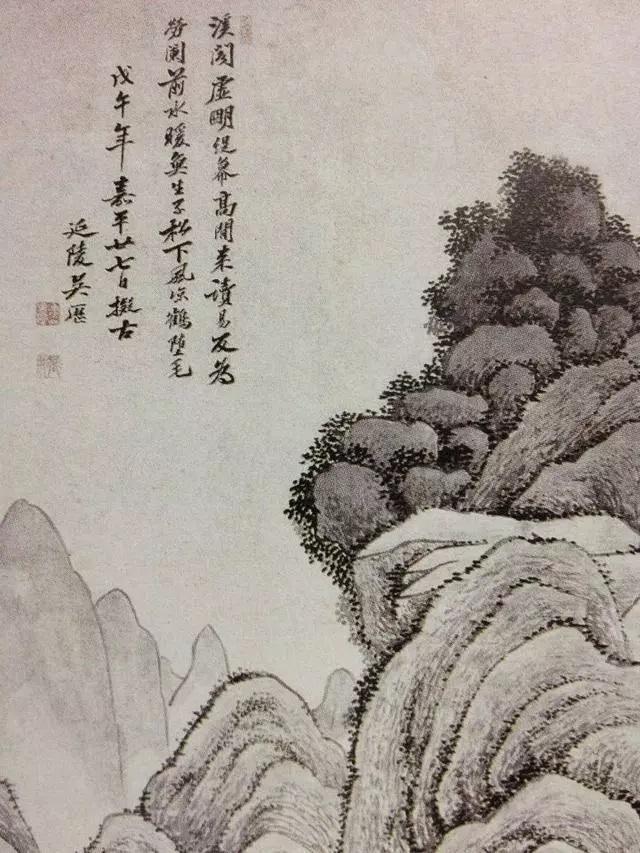 溪閣虛明幕高閒来讀易反為
勞閣前水暖魚生子松下風涼鶴墮毛
戊午年嘉平廿七日擬古
延陵吳歷